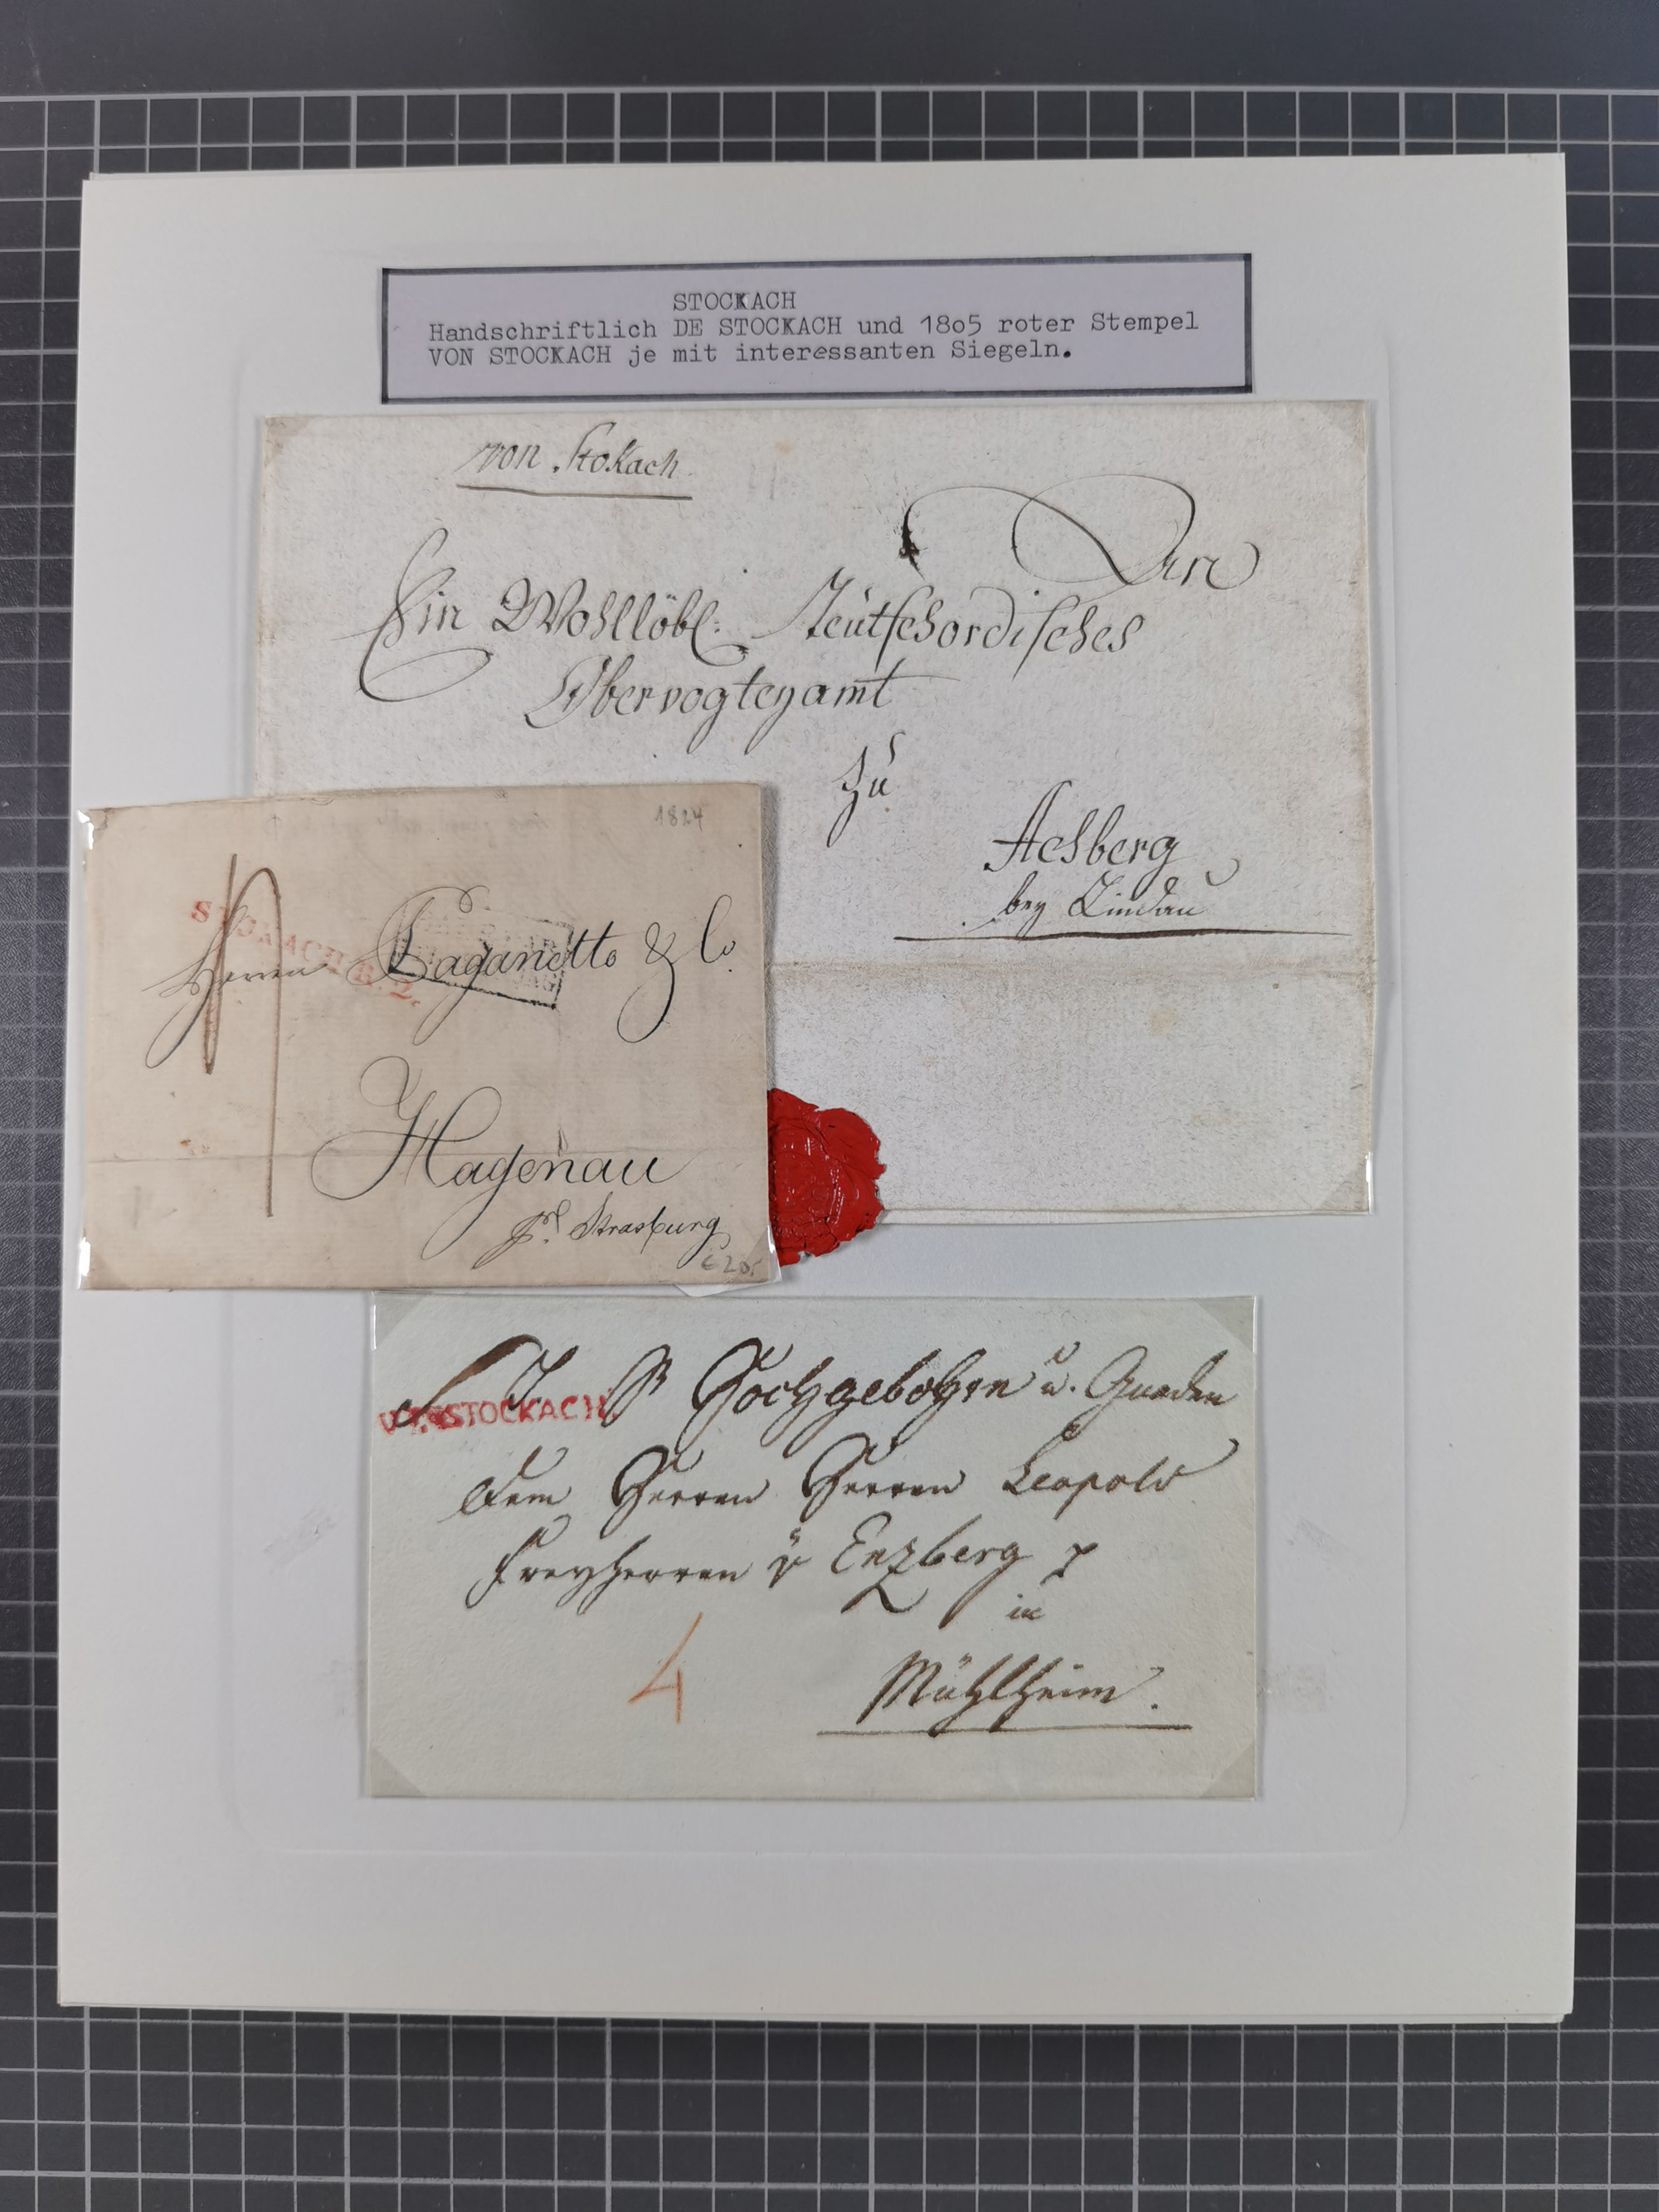 STOCKACH
Handschriftlich DE STOCKACH und 18o5 roter Stempel
VON STOCKACH je mit interessanten Siegeln.
von Stokach
Den
Ein Wohllöbl: Teütschordisches
Obervogteyamt
zu
Achberg
bey Lindau
1824
STOKACH R. 2.
Herren Paganetto & Co
Hagenau
pr. Strasburg
€ 20,-
V. STOCKACH.
Hochgebohren u. Gnaden
dem Herren Herren Leopold
Freyherren v Enzberg
in
4
Mühlheim.